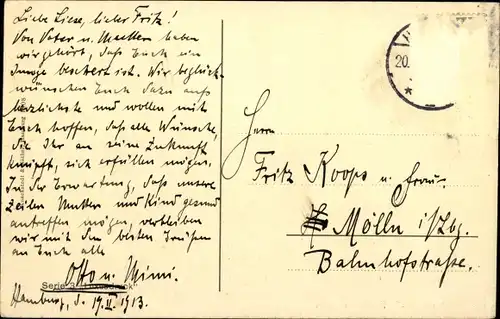 Liebe Liese, lieber Fritz!
Von Vater u. Mutter haben
wir gehört, daß Euch ein
Junge beschert ist. Wir beglück-
wünschen Euch dazu aufs
herzlichste und wollen mit
Euch hoffen, daß alle Wünsche,
die Ihr an seine Zukunft
knüpft, sich erfüllen mögen.
In der Erwartung, daß unsere
Zeilen Mutter und Kind gesund
antreffen mögen, verbleiben
wir mit den besten Grüßen
an Euch alle
Otto u. Mimi.
Serie 3
Hamburg, d. 19.II.1913.
20.
Herrn
Fritz Koops u. Frau
Mölln i/Lbg.
Bahnhofstrasse.